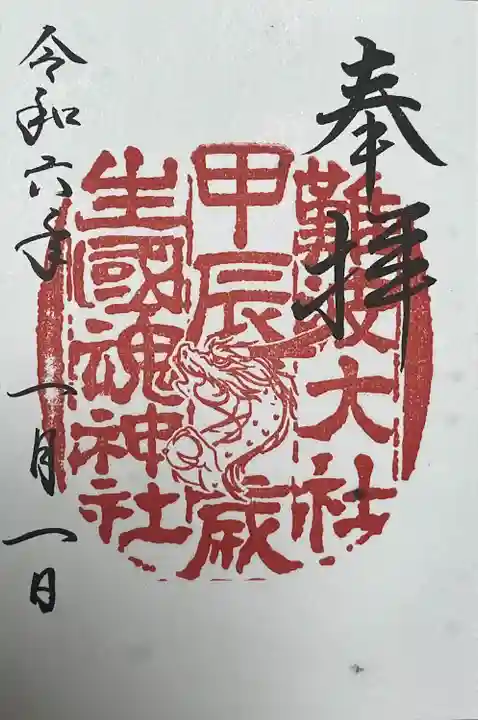 奉拝
難波大社
甲辰歳
生國魂神社
令和六年一月一日